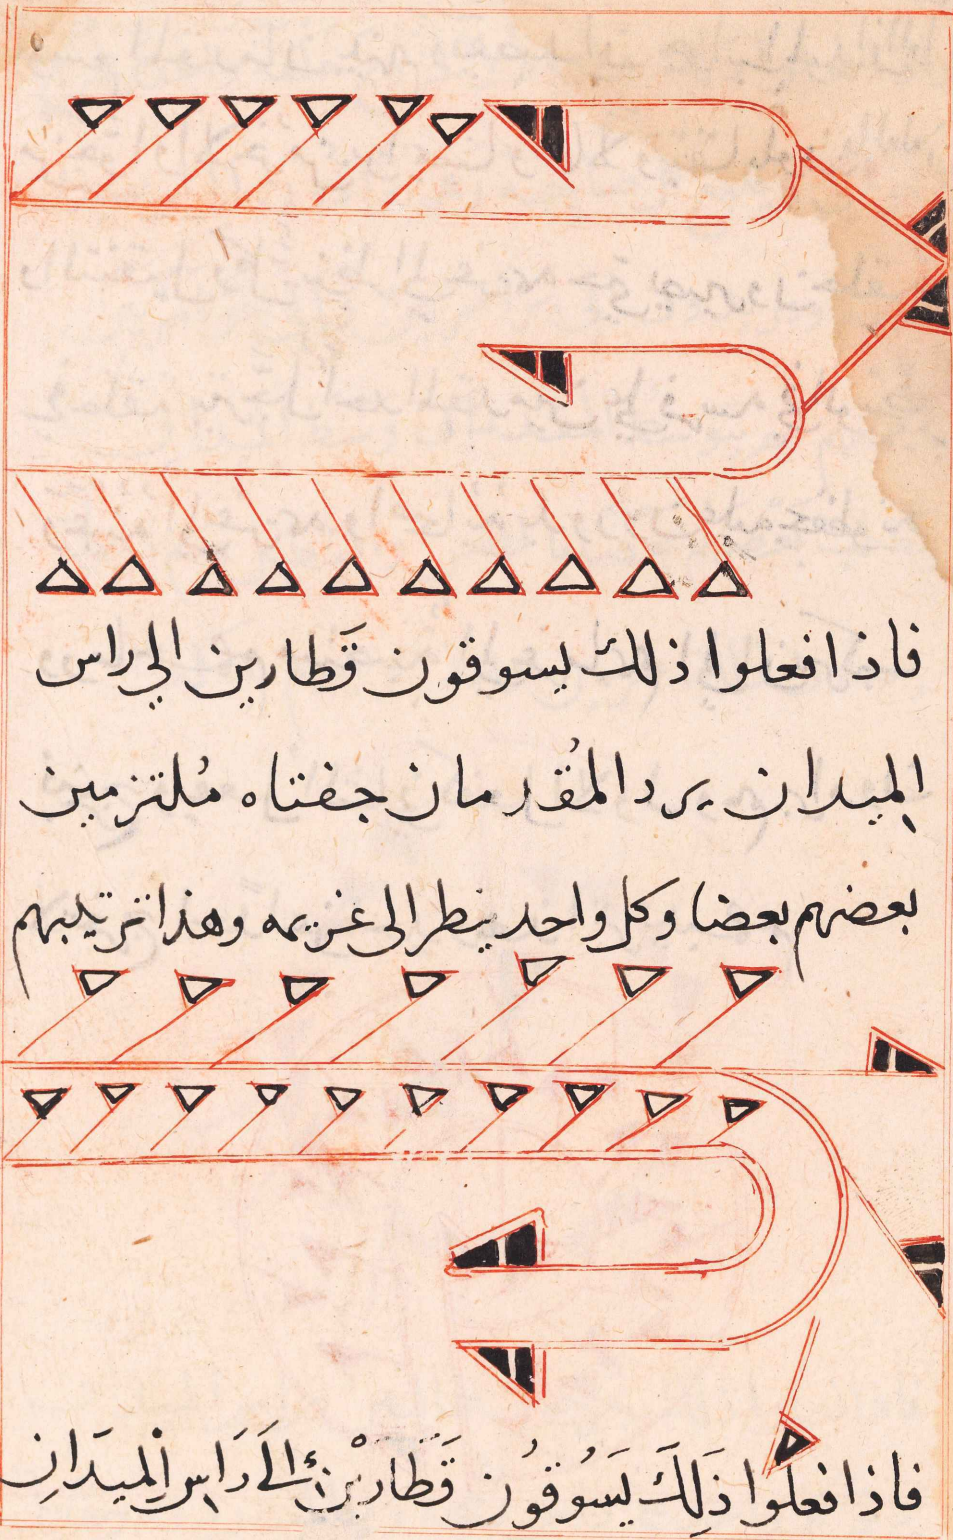 فاذا فعلوا ذلك يسوقون قَطارين الي راس
الميدان يرد المُقدمان جفتاه مُلتزمين
بعضهم بعضا وكل واحد ينظر الى غريمه وهذا ترتيبهم
فاذا فعلوا ذَلِكَ يَسُوقُون قَطَارين الَى رَاس الميدَانِ